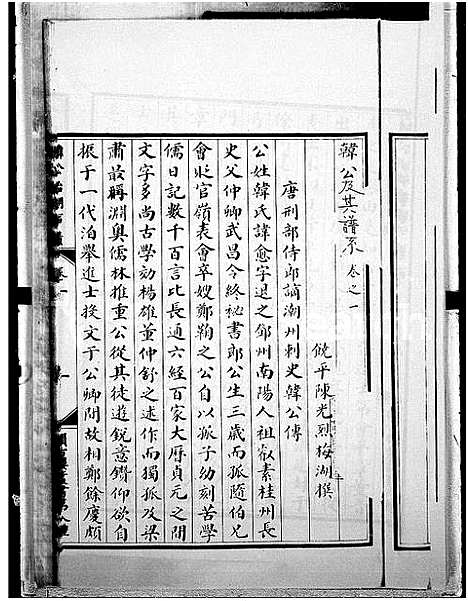 韓公及其譜系 卷之一
饒平陳光烈梅湖撰
唐刑部侍郎謫潮州刺史韓公傳
公姓韓氏諱愈字退之鄧州南陽人祖叡素桂州長
史父仲卿武昌令終秘書郎公生三歲而孤隨伯兄
會貶官嶺表會卒嫂鄭鞠之公自以孤子幼刻苦學
儒日記數千百言比長通六經百家大厯貞元之間
文字多尚古學効楊雄董仲舒之述作而獨孤及梁
肅最稱淵奧儒林推重公從其徒遊銳意鑽仰欲自
振于一代洎舉進士投文于公卿間故相鄭餘慶頗